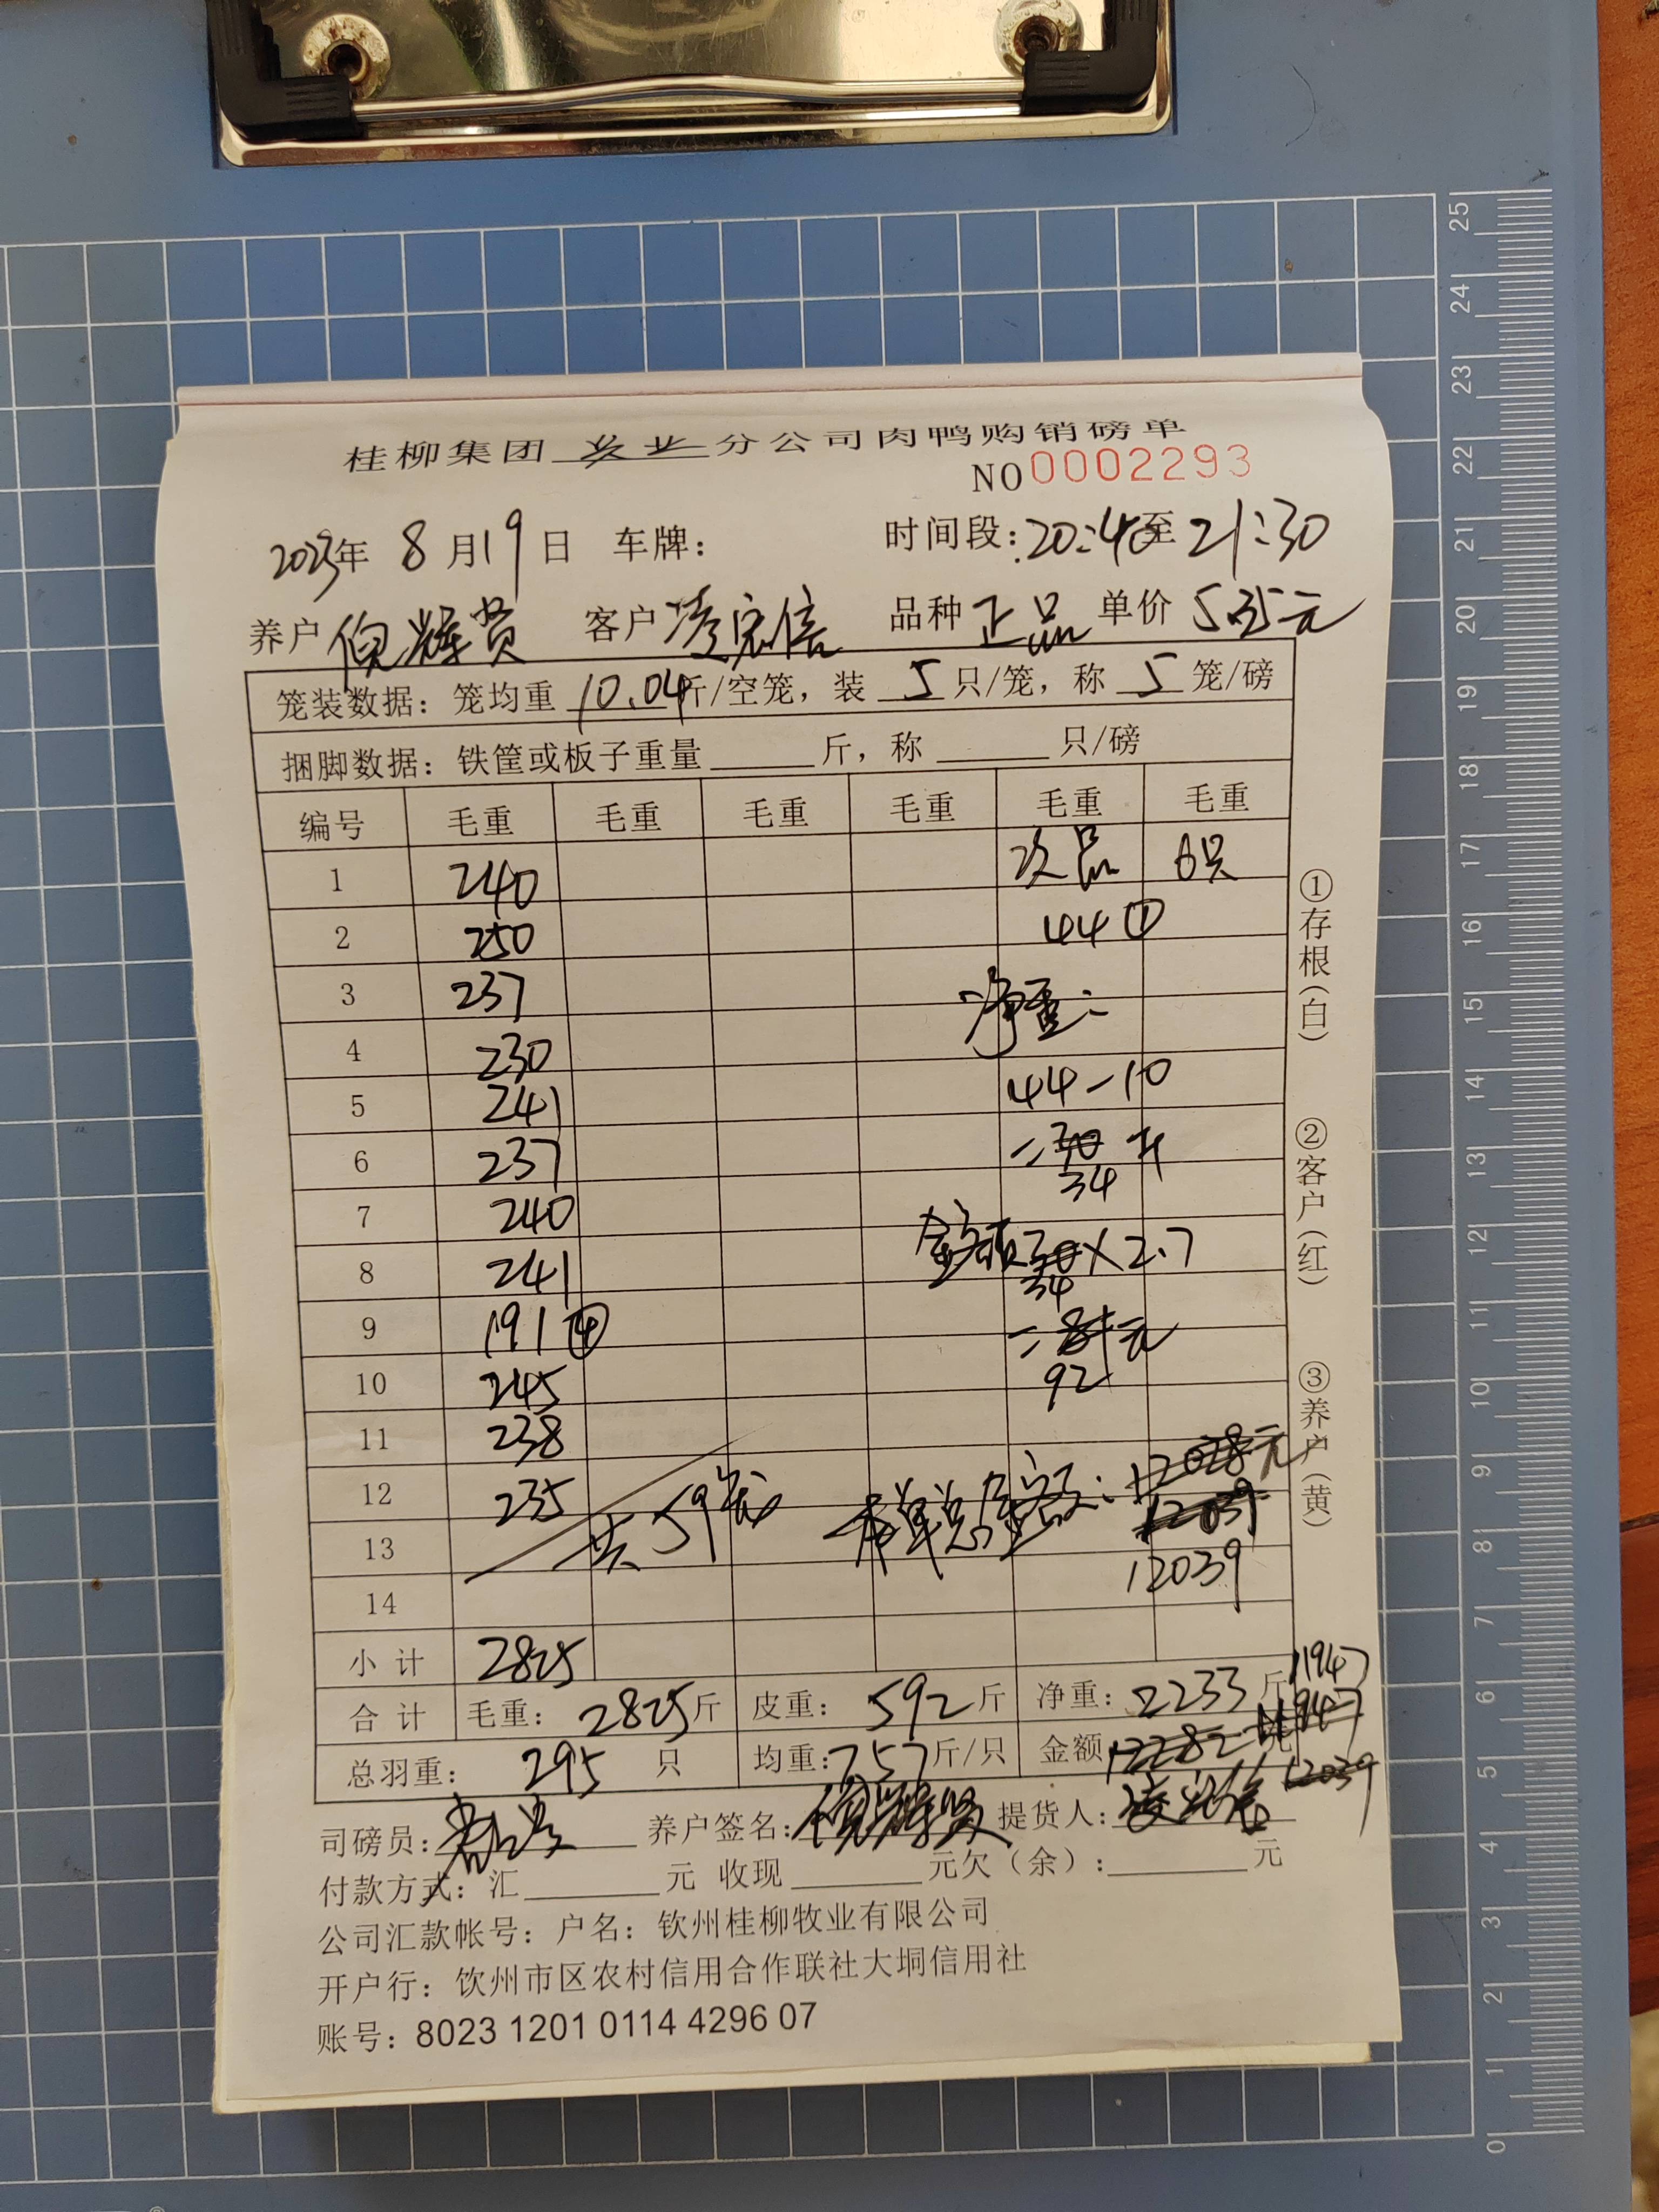 桂柳集团 农业 分公司肉鸭购销磅单
NO 0002293
2023年 8月19日 车牌: 时间段:20:40至21:30
养户 倪辉贤 客户 凌宏信 品种 正品 单价 5.35元
笼装数据:笼均重 10.04斤/空笼,装 5 只/笼,称 5 笼/磅
捆脚数据:铁筐或板子重量 斤,称 只/磅
编号 毛重 毛重 毛重 毛重 毛重 毛重
1 240 次品 6只
2 250 44①
3 237 净重:
4 230
5 241 44-10
6 237 =30斤
34
7 240 金额30×2.7
34
8 241
9 191④ =81元
10 245 92
11 238
12 235 共59笼 本单总金额:12028元
12039
13
12039
14
小计 2825
11947
合计 毛重:2825斤 皮重:592斤 净重:2233斤
11947
总羽重: 295 只 均重:7.57斤/只 金额 12282元
12039
司磅员: 养户签名:倪辉贤 提货人:凌宏信
付款方式:汇 元 收现 元欠(余): 元
公司汇款帐号:户名:钦州桂柳牧业有限公司
开户行:钦州市区农村信用合作联社大垌信用社
账号:8023 1201 0114 4296 07
①存根(白) ②客户(红) ③养户(黄)
25
24
23
22
21
20
19
18
17
16
15
14
13
12
11
10
9
8
7
6
5
4
3
2
1
0